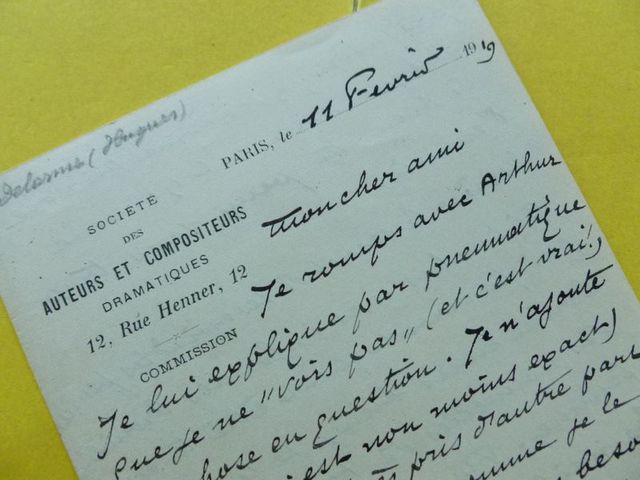 Delorme (Hugues)
PARIS, le 11 Fevrier 1919
SOCIÉTÉ
DES
AUTEURS ET COMPOSITEURS
DRAMATIQUES
12, Rue Henner, 12
COMMISSION
Mon cher ami
Je romps avec Arthur
Je lui explique par pneumatique
que je ne "vois pas" (et c'est vrai!)
chose en question. Je n'ajoute
est non moins exact)
pris d'autre part
comme je le
beso